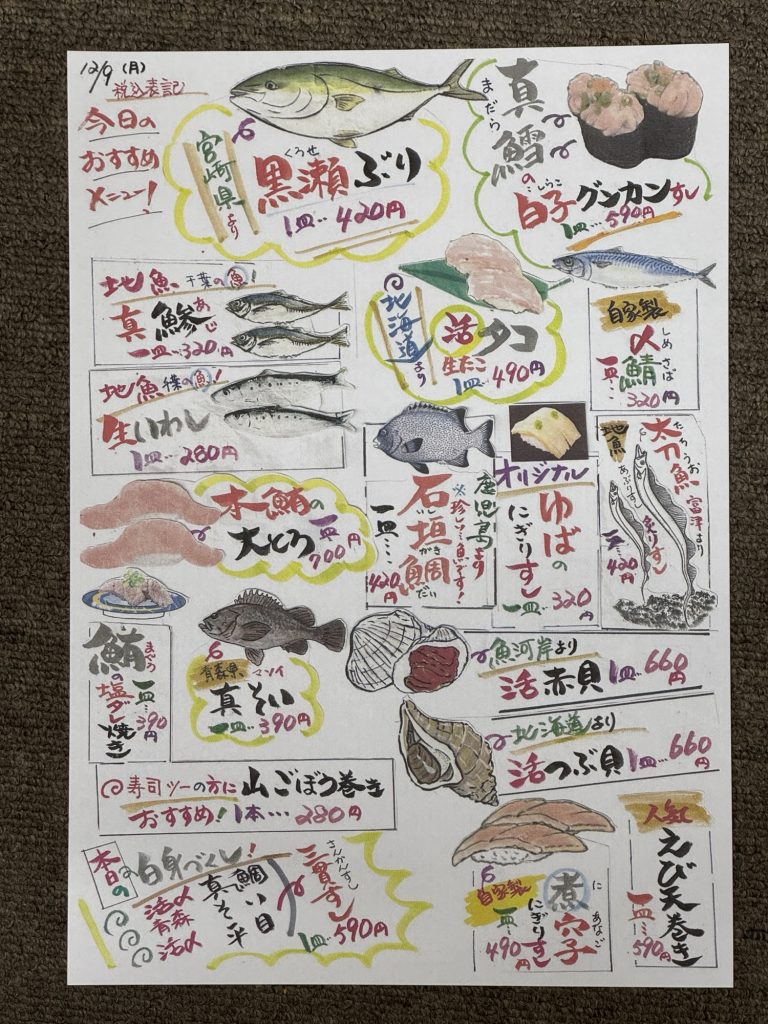 12/9(月)
税込表記
今日の
おすすめ
メニュー!
宮崎県より
くろせ
黒瀬ぶり
1皿…420円
まだら
真鱈の
しらこ
白子グンカンすし
1皿…590円
地魚 千葉の魚!
真鯵
あじ
一皿…320円
北海道より
活タコ
生たこ
1皿…490円
自家製
〆鯖
しめさば
一皿…320円
地魚 僕の魚!
生いわし
1皿…280円
本鮪の
大とろ
一皿700円
鹿児島より
※珍しい魚です!
石垣鯛
がき だい
一皿…420円
オリジナル
ゆばの
にぎりすし
一皿…320円
地魚
太刀魚
たちうお
富津より
あぶりすし
炙りすし
一皿…420円
鮪の塩ダレ焼き
まぐろ
一皿…390円
青森県
マゾイ
真そい
一皿…390円
魚河岸より
活赤貝 1皿…660円
北海道より
活つぶ貝 1皿…660円
寿司ツーの方に 山ごぼう巻き
おすすめ!1本…280円
本日の
白身づくし!
活〆 鯛
青森 真そい
活〆 平目
さんかんすし
三貫すし
1皿…590円
自家製
煮穴子
に あなご
にぎりすし
一皿…490円
人気
えび天巻き
一皿…590円